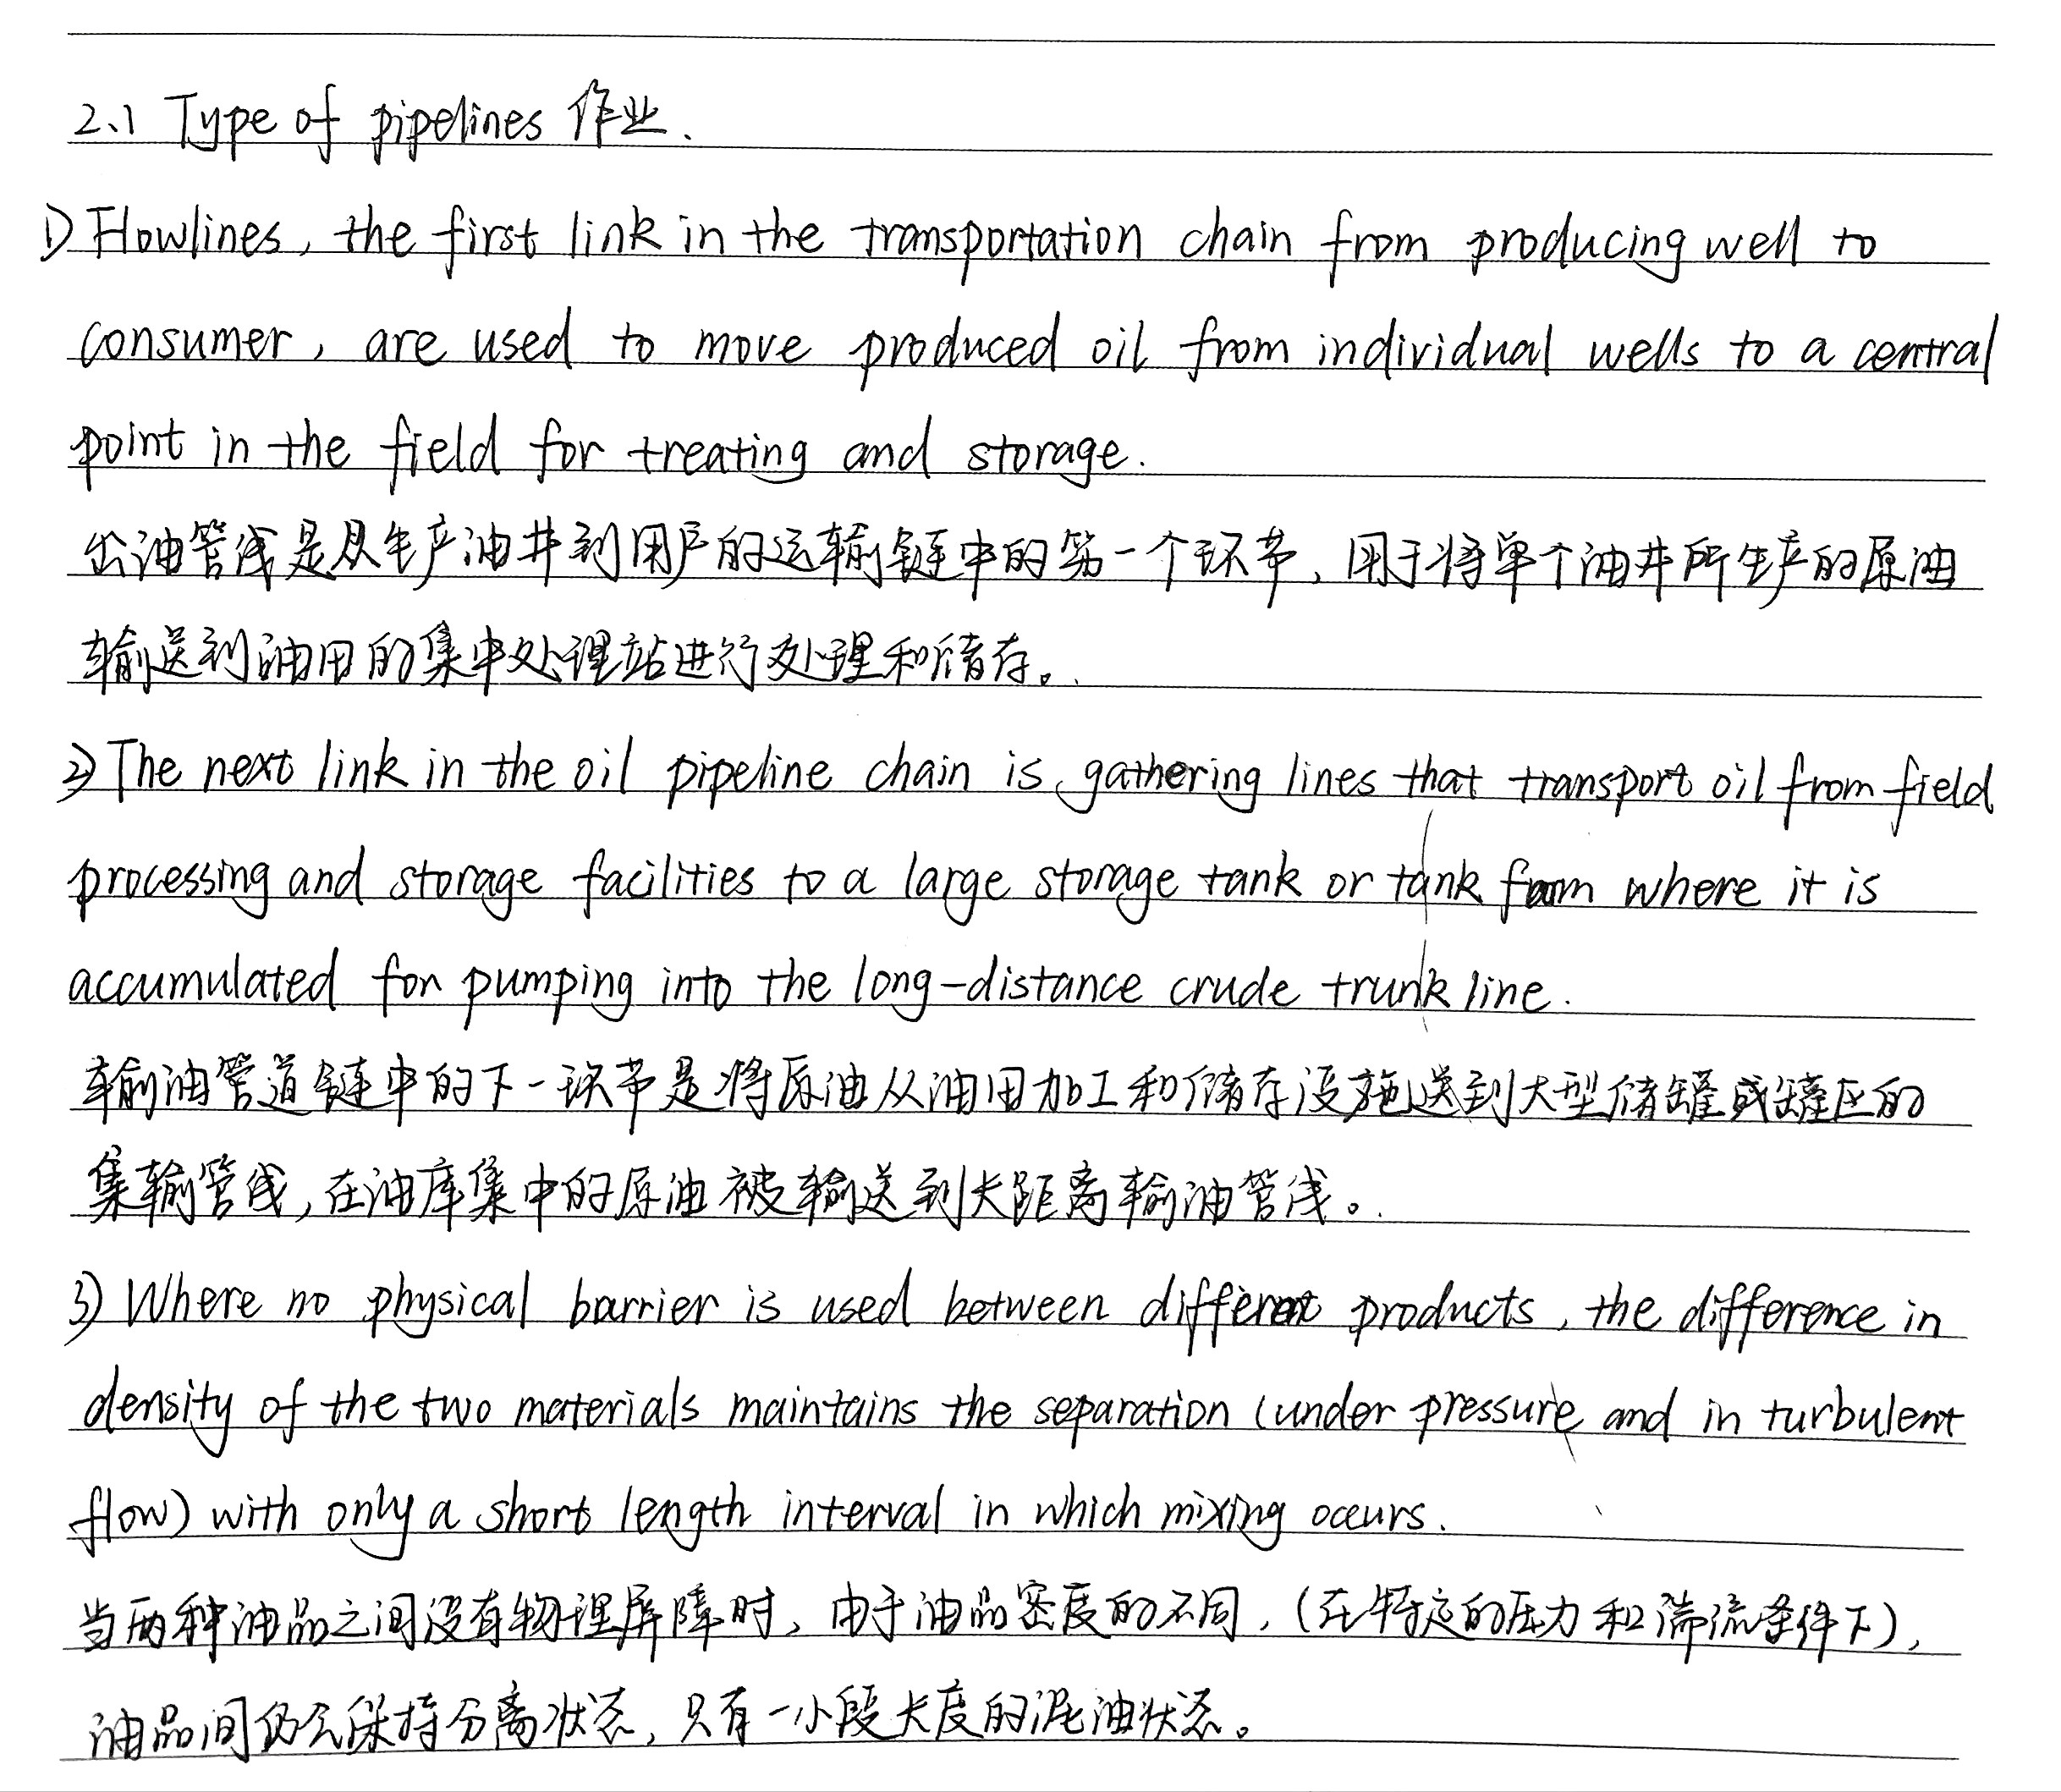 2.1 Type of pipelines 作业.
1) Flowlines, the first link in the transportation chain from producing well to
consumer, are used to move produced oil from individual wells to a central
point in the field for treating and storage.
出油管线是从生产油井到用户的运输链中的第一个环节,用于将单个油井所生产的原油
输送到油田的集中处理站进行处理和储存。
2) The next link in the oil pipeline chain is gathering lines that transport oil from field
processing and storage facilities to a large storage tank or tank farm where it is
accumulated for pumping into the long-distance crude trunk line.
输油管道链中的下一环节是将原油从油田加工和储存设施送到大型储罐或罐区的
集输管线,在油库集中的原油被输送到长距离输油管线。
3) Where no physical barrier is used between different products, the difference in
density of the two materials maintains the separation (under pressure and in turbulent
flow) with only a short length interval in which mixing occurs.
当两种油品之间没有物理屏障时,由于油品密度的不同,(在特定的压力和湍流条件下),
油品间仍会保持分离状态,只有一小段长度的混油状态。